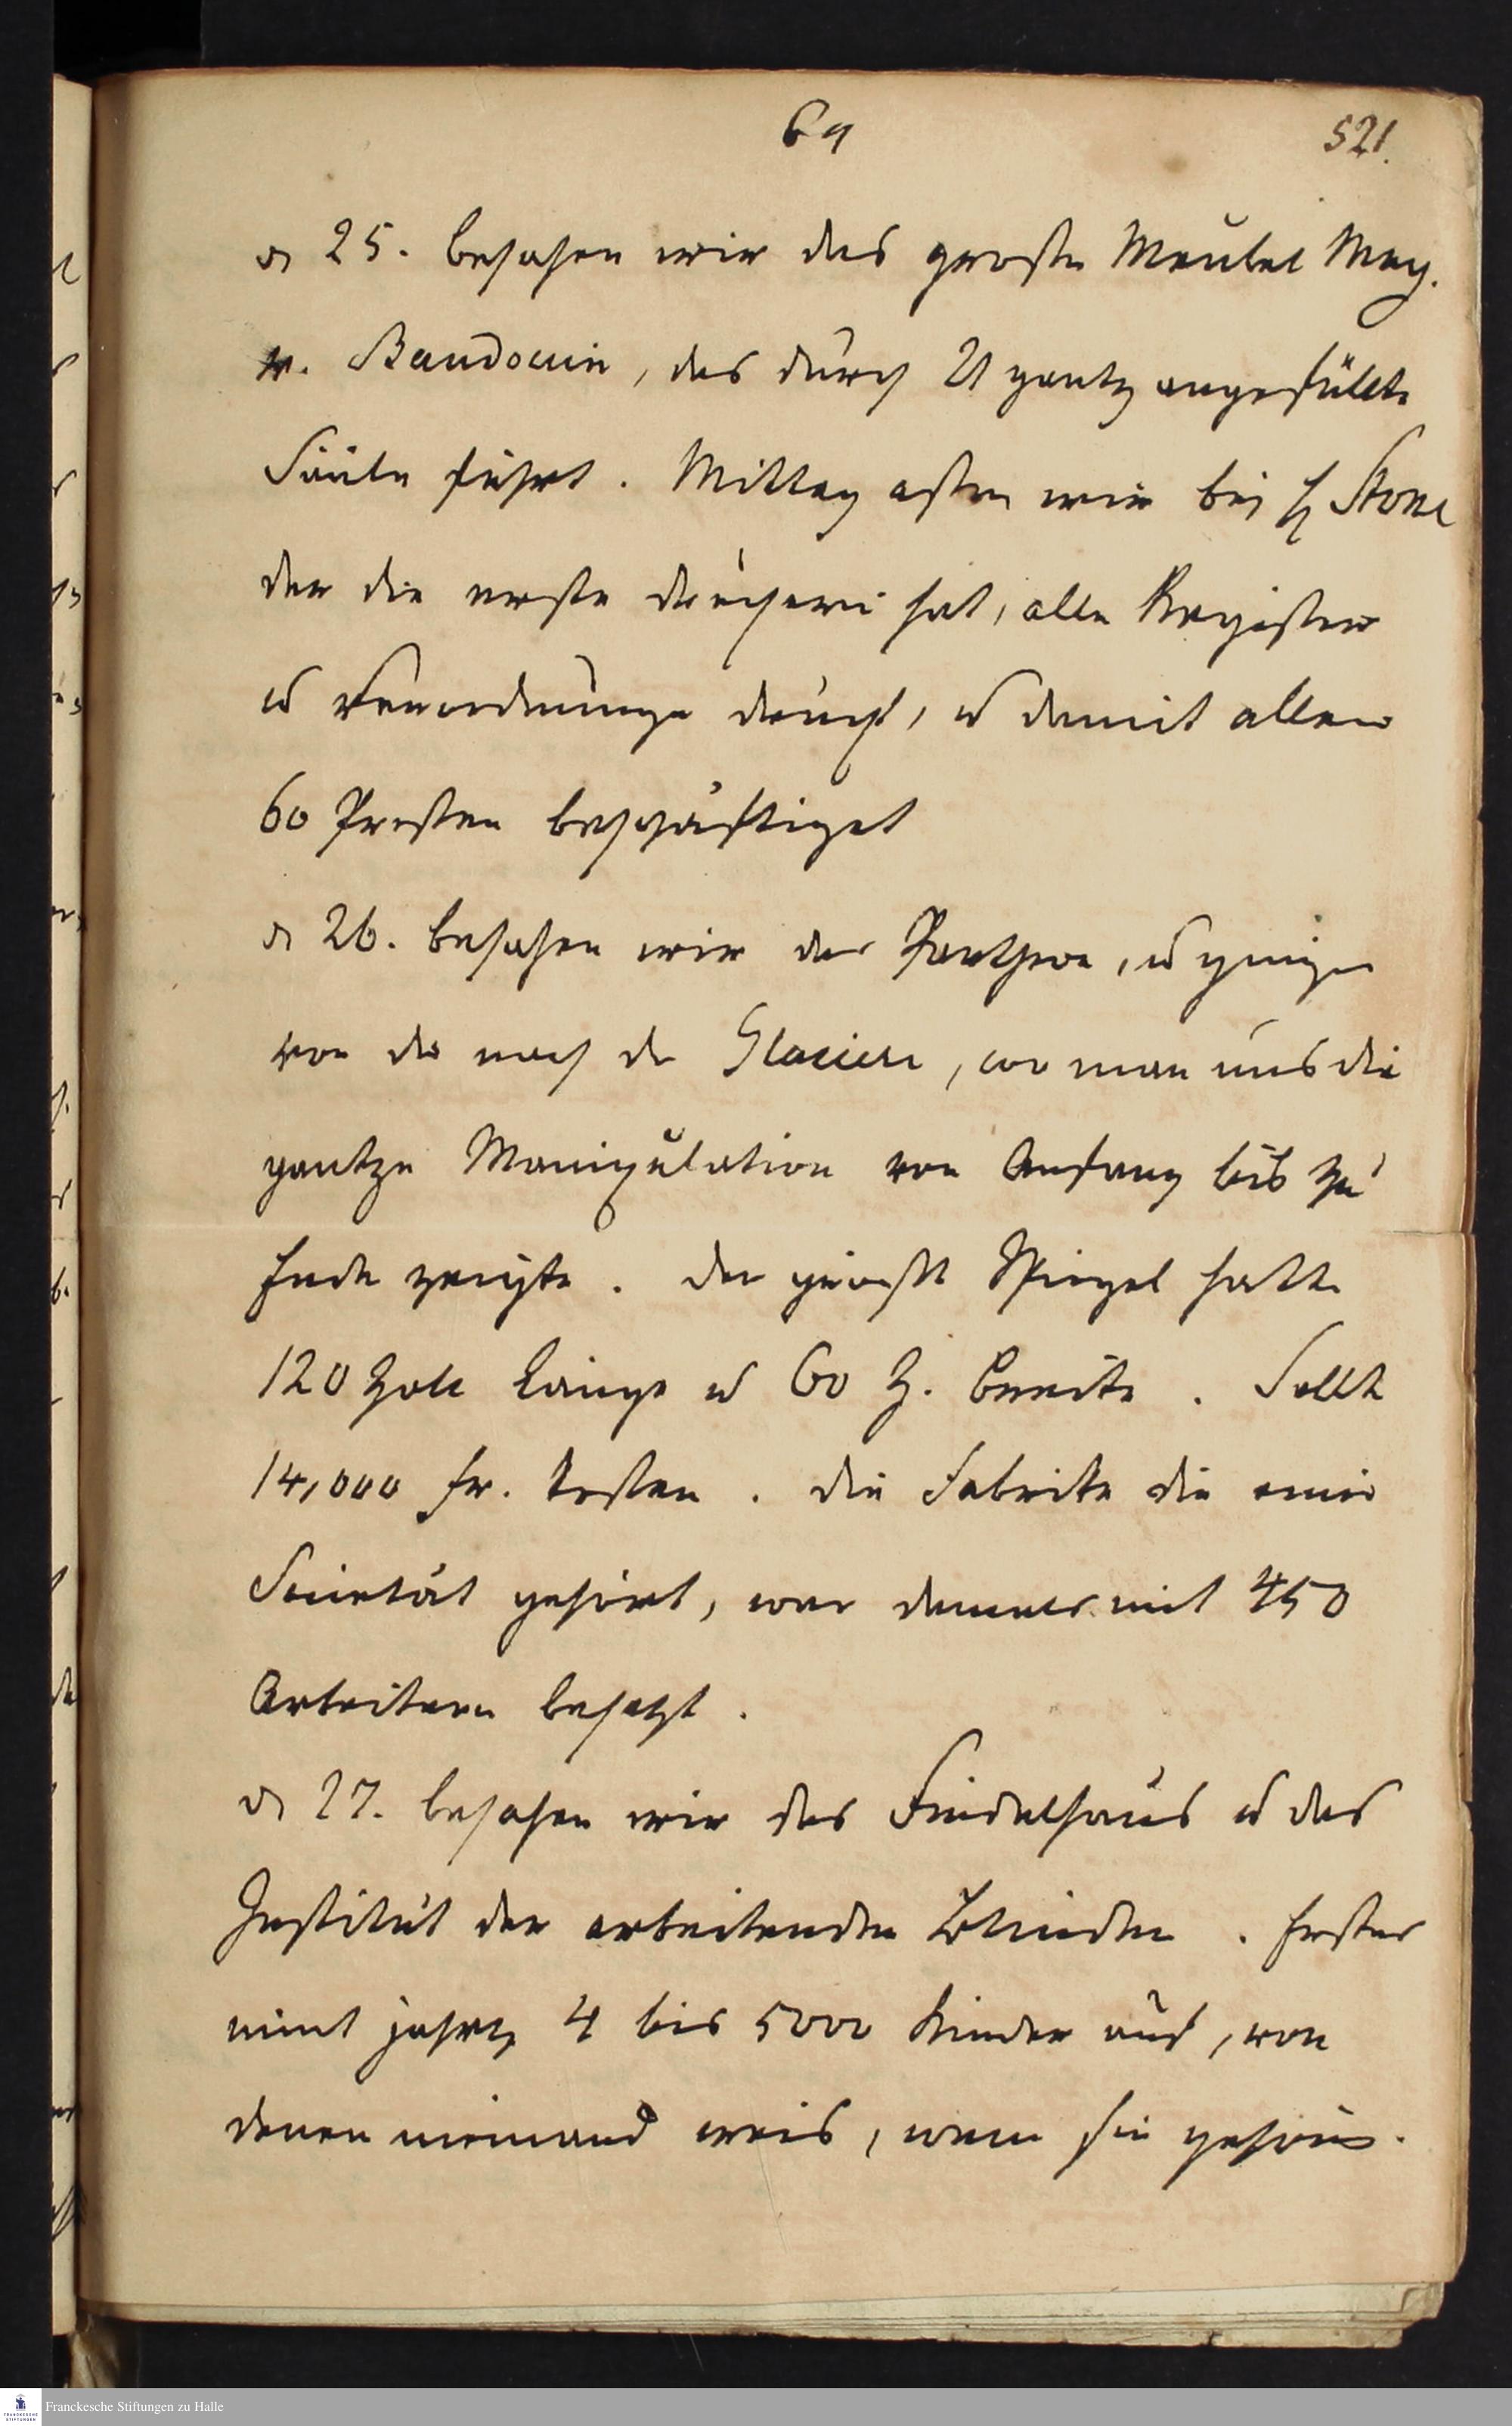 69 521.
d 25. besahen wir das große Meubel Mag.
v. Baudouin, das durch 21 gantz angefüllte
Sääle führt. Mittag aßen wir bei H Stone
der die erste druckerei hat, alle Register
u Verordnunge druckt, u damit allein
60 Preßen beschäftiget
d 26. besahen wir das Pantheon, u gingen
von da nach der Glaciere, wo man uns die
gantze Manipulation von Anfang bis zu
Ende zeigte. der grösste Spiegel hatte
120 Zoll Länge u 60 Z. Breite. Sollte
14,000 fr. kosten. die Fabrike die einer
Societät gehört, war damals mit 450
Arbeitern besetzt.
d 27. besahen wir das Findelhaus u das
Institut der arbeitenden Blinden. Erstes
nimt jahrl 4 bis 5000 Kinder auf, von
denen niemand weis, wem sie gehören.
Franckesche Stiftungen zu Halle